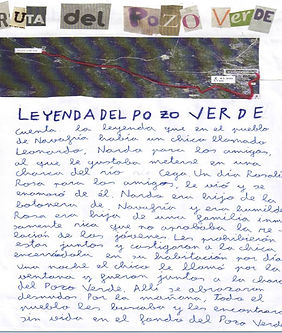 RUTA del Pozo VerDE
LEYENDA DEL POZO VERDE
Cuenta la leyenda que en el pueblo
de Navafría había un chico llamado
Leonardo, Nardo para los amigos,
al que le gustaba meterse en una
charca del rio Cega. Un día Rosalí
Rosa para los amigos, le vió y se
enamoró de él. Nardo era hijo de la
botonera de Navafría y era humilde
Rosa era hija de una familia inmen
samente rica que no aprobaba la re-
lación de los jóvenes. Les prohibieron
estar juntos y castigaron a la chica
encerrándola en su habitación por día
Una noche el chico le llamó por la
ventana y fueron juntos a la charca
del Pozo Verde. Allí se abrazaron
desnudos. Por la mañana, todo el
pueblo les buscaba y les encontraron
sin vida en el fondo del Pozo Verde